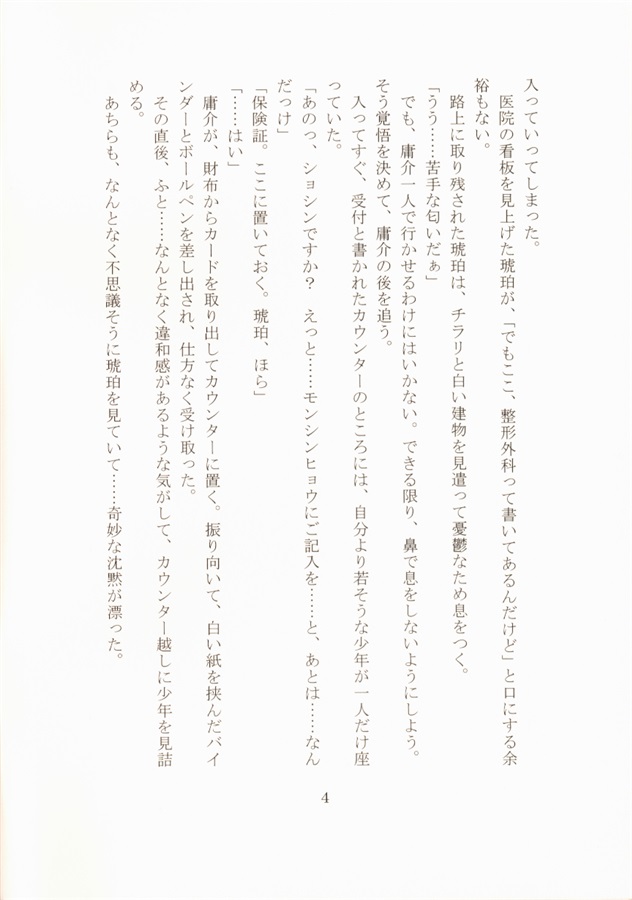 入っていってしまった。
　医院の看板を見上げた琥珀が、「でもここ、整形外科って書いてあるんだけど」と口にする余
裕もない。
　路上に取り残された琥珀は、チラリと白い建物を見遣って憂鬱なため息をつく。
「うう……苦手な匂いだぁ」
　でも、庸介一人で行かせるわけにはいかない。できる限り、鼻で息をしないようにしよう。
そう覚悟を決めて、庸介の後を追う。
　入ってすぐ、受付と書かれたカウンターのところには、自分より若そうな少年が一人だけ座
っていた。
「あのっ、ショシンですか？　えっと……モンシンヒョウにご記入を……と、あとは……なん
だっけ」
「保険証。ここに置いておく。琥珀、ほら」
「……はい」
　庸介が、財布からカードを取り出してカウンターに置く。振り向いて、白い紙を挟んだバイ
ンダーとボールペンを差し出され、仕方なく受け取った。
　その直後、ふと……なんとなく違和感があるような気がして、カウンター越しに少年を見詰
める。
　あちらも、なんとなく不思議そうに琥珀を見ていて……奇妙な沈黙が漂った。
4